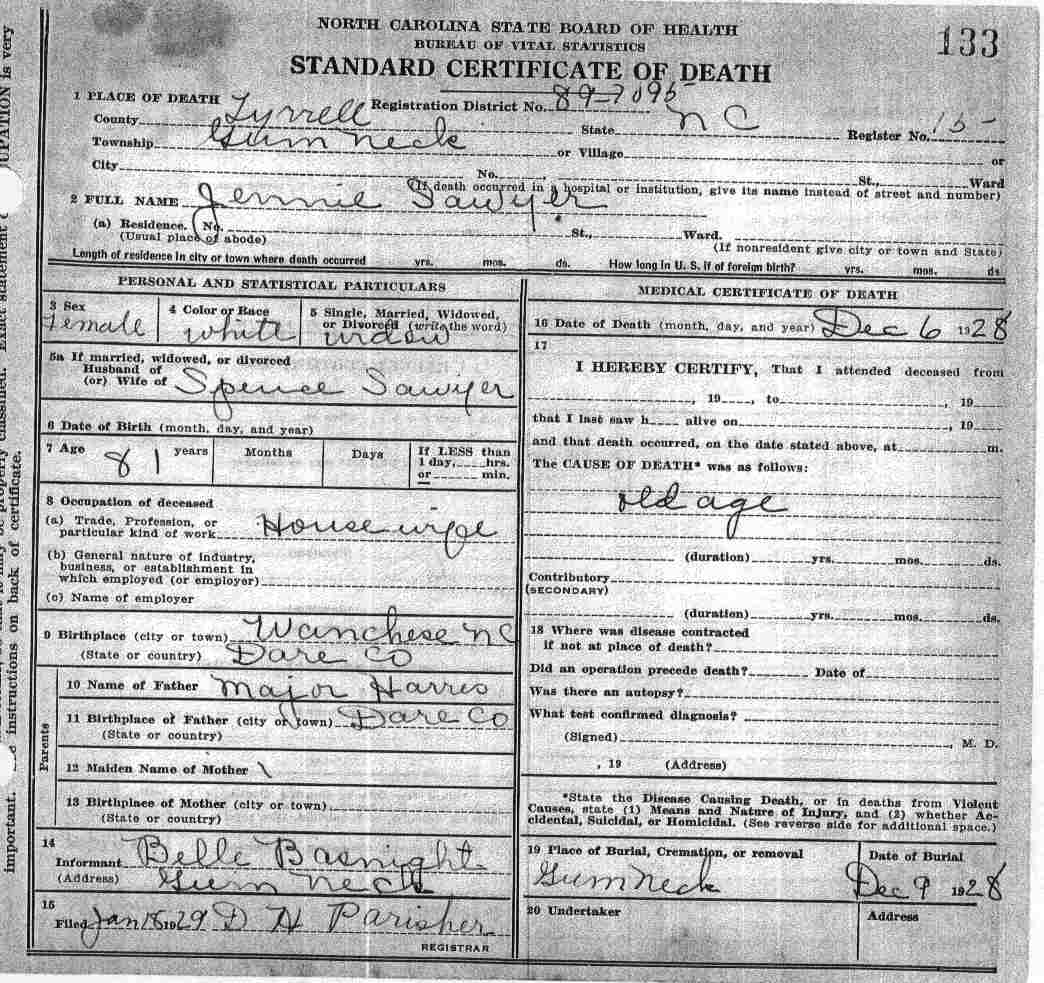 133
NORTH CAROLINA STATE BOARD OF HEALTH
BUREAU OF VITAL STATISTICS
STANDARD CERTIFICATE OF DEATH
1 PLACE OF DEATH Registration District No. 89-7095
County Tyrrell State N C Register No. 15-
Township Gum Neck or Village or
City No. St., Ward
(If death occurred in a hospital or institution, give its name instead of street and number)
2 FULL NAME Jennie Sawyer
(a) Residence. No. St., Ward.
(Usual place of abode) (If nonresident give city or town and State)
Length of residence in city or town where death occurred yrs. mos. ds. How long in U. S. if of foreign birth? yrs. mos. ds
PERSONAL AND STATISTICAL PARTICULARS
3 Sex
Female
4 Color or Race
White
5 Single, Married, Widowed,
or Divorced (write the word)
widow
5a If married, widowed, or divorced
Husband of
(or) Wife of Spence Sawyer
6 Date of Birth (month, day, and year)
7 Age 81 years Months Days If LESS than
1 day, hrs.
or min.
8 Occupation of deceased
(a) Trade, Profession, or
particular kind of work House wife
(b) General nature of industry,
business, or establishment in
which employed (or employer)
(c) Name of employer
9 Birthplace (city or town) Wanchese NC
(State or country) Dare Co
Parents
10 Name of Father Major Harris
11 Birthplace of Father (city or town) Dare Co
(State or country)
12 Maiden Name of Mother
13 Birthplace of Mother (city or town)
(State or country)
14
Informant Belle Basnight
(Address) Gum Neck
15
Filed Jan 1929 D H Parisher
REGISTRAR
MEDICAL CERTIFICATE OF DEATH
16 Date of Death (month, day, and year) Dec 6 1928
17
I HEREBY CERTIFY, That I attended deceased from
, 19 , to , 19
that I last saw h alive on , 19
and that death occurred, on the date stated above, at m.
The CAUSE OF DEATH* was as follows:
old age
(duration) yrs. mos. ds.
Contributory
(SECONDARY)
(duration) yrs. mos. ds.
18 Where was disease contracted
if not at place of death?
Did an operation precede death? Date of
Was there an autopsy?
What test confirmed diagnosis?
(Signed) , M. D.
, 19 (Address)
*State the Disease Causing Death, or in deaths from Violent
Causes, state (1) Means and Nature of Injury, and (2) whether Ac-
cidental, Suicidal, or Homicidal. (See reverse side for additional space.)
19 Place of Burial, Cremation, or removal
Gum Neck
Date of Burial
Dec 9 1928
20 Undertaker
Address
UPATION is very
Exact statement
properly classified.
instructions on back of certificate.
important.